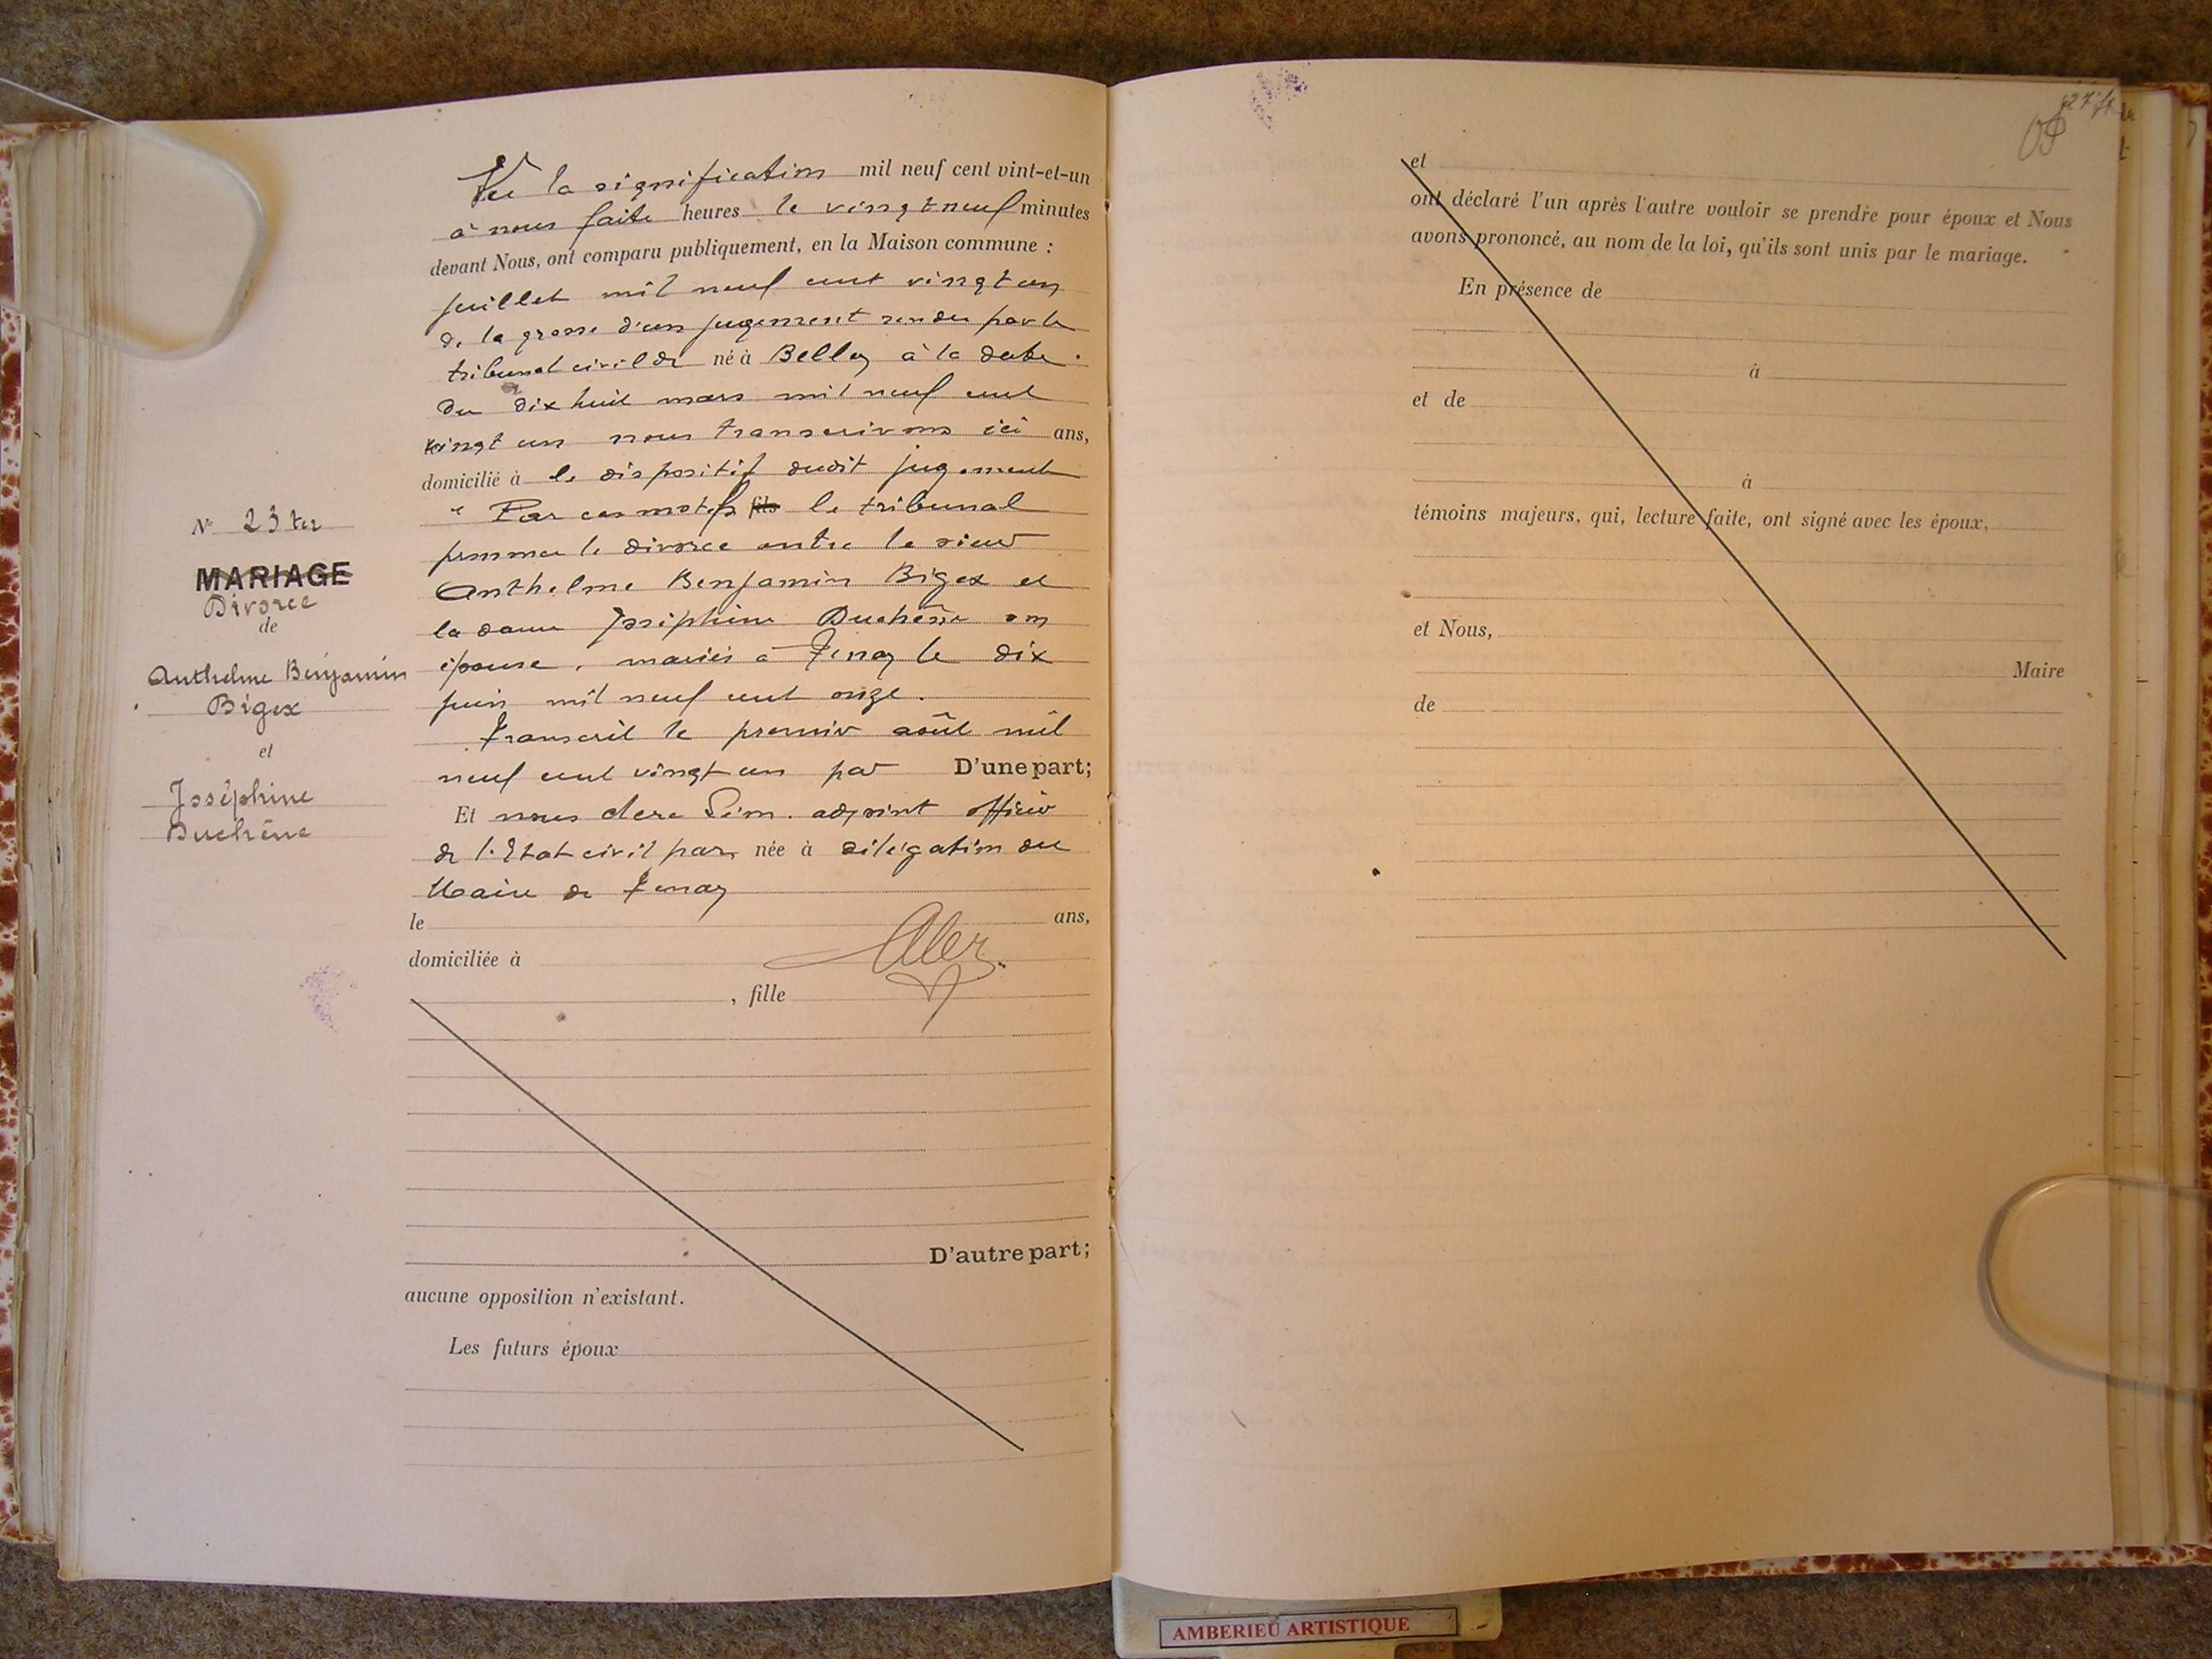 N° 23 ter
MARIAGE
Divorce
de
Anthelme Benjamin
Bigex
et
Joséphine
Duchêne
Vu la signification mil neuf cent vint-et-un
à nous faite heures le vingt neuf minutes
devant Nous, ont comparu publiquement, en la Maison commune :
juillet mil neuf cent vingt un
de la grosse d'un jugement rendu par le
tribunal civil de né à Belley à la date
du dix huit mars mil neuf cent
vingt un nous transcrivons ici ans,
domicilié à le dispositif dudit jugement
" Par ces motifs fils le tribunal
prononce le divorce entre le sieur
Anthelme Benjamin Bigex et
la dame Joséphine Duchêne son
épouse, mariés à Tenay le dix
juin mil neuf cent onze.
Transcrit le premier août mil
neuf cent vingt un par D'une part;
Et nous adjoint officier
de l'Etat civil par née à délégation du
Maire de Tenay
le ans,
domiciliée à
, fille
D'autre part;
aucune opposition n'existant.
Les futurs époux
et
ont déclaré l'un après l'autre vouloir se prendre pour époux et Nous
avons prononcé, au nom de la loi, qu'ils sont unis par le mariage.
En présence de
à
et de
à
témoins majeurs, qui, lecture faite, ont signé avec les époux,
et Nous,
Maire
de
AMBERIEU ARTISTIQUE